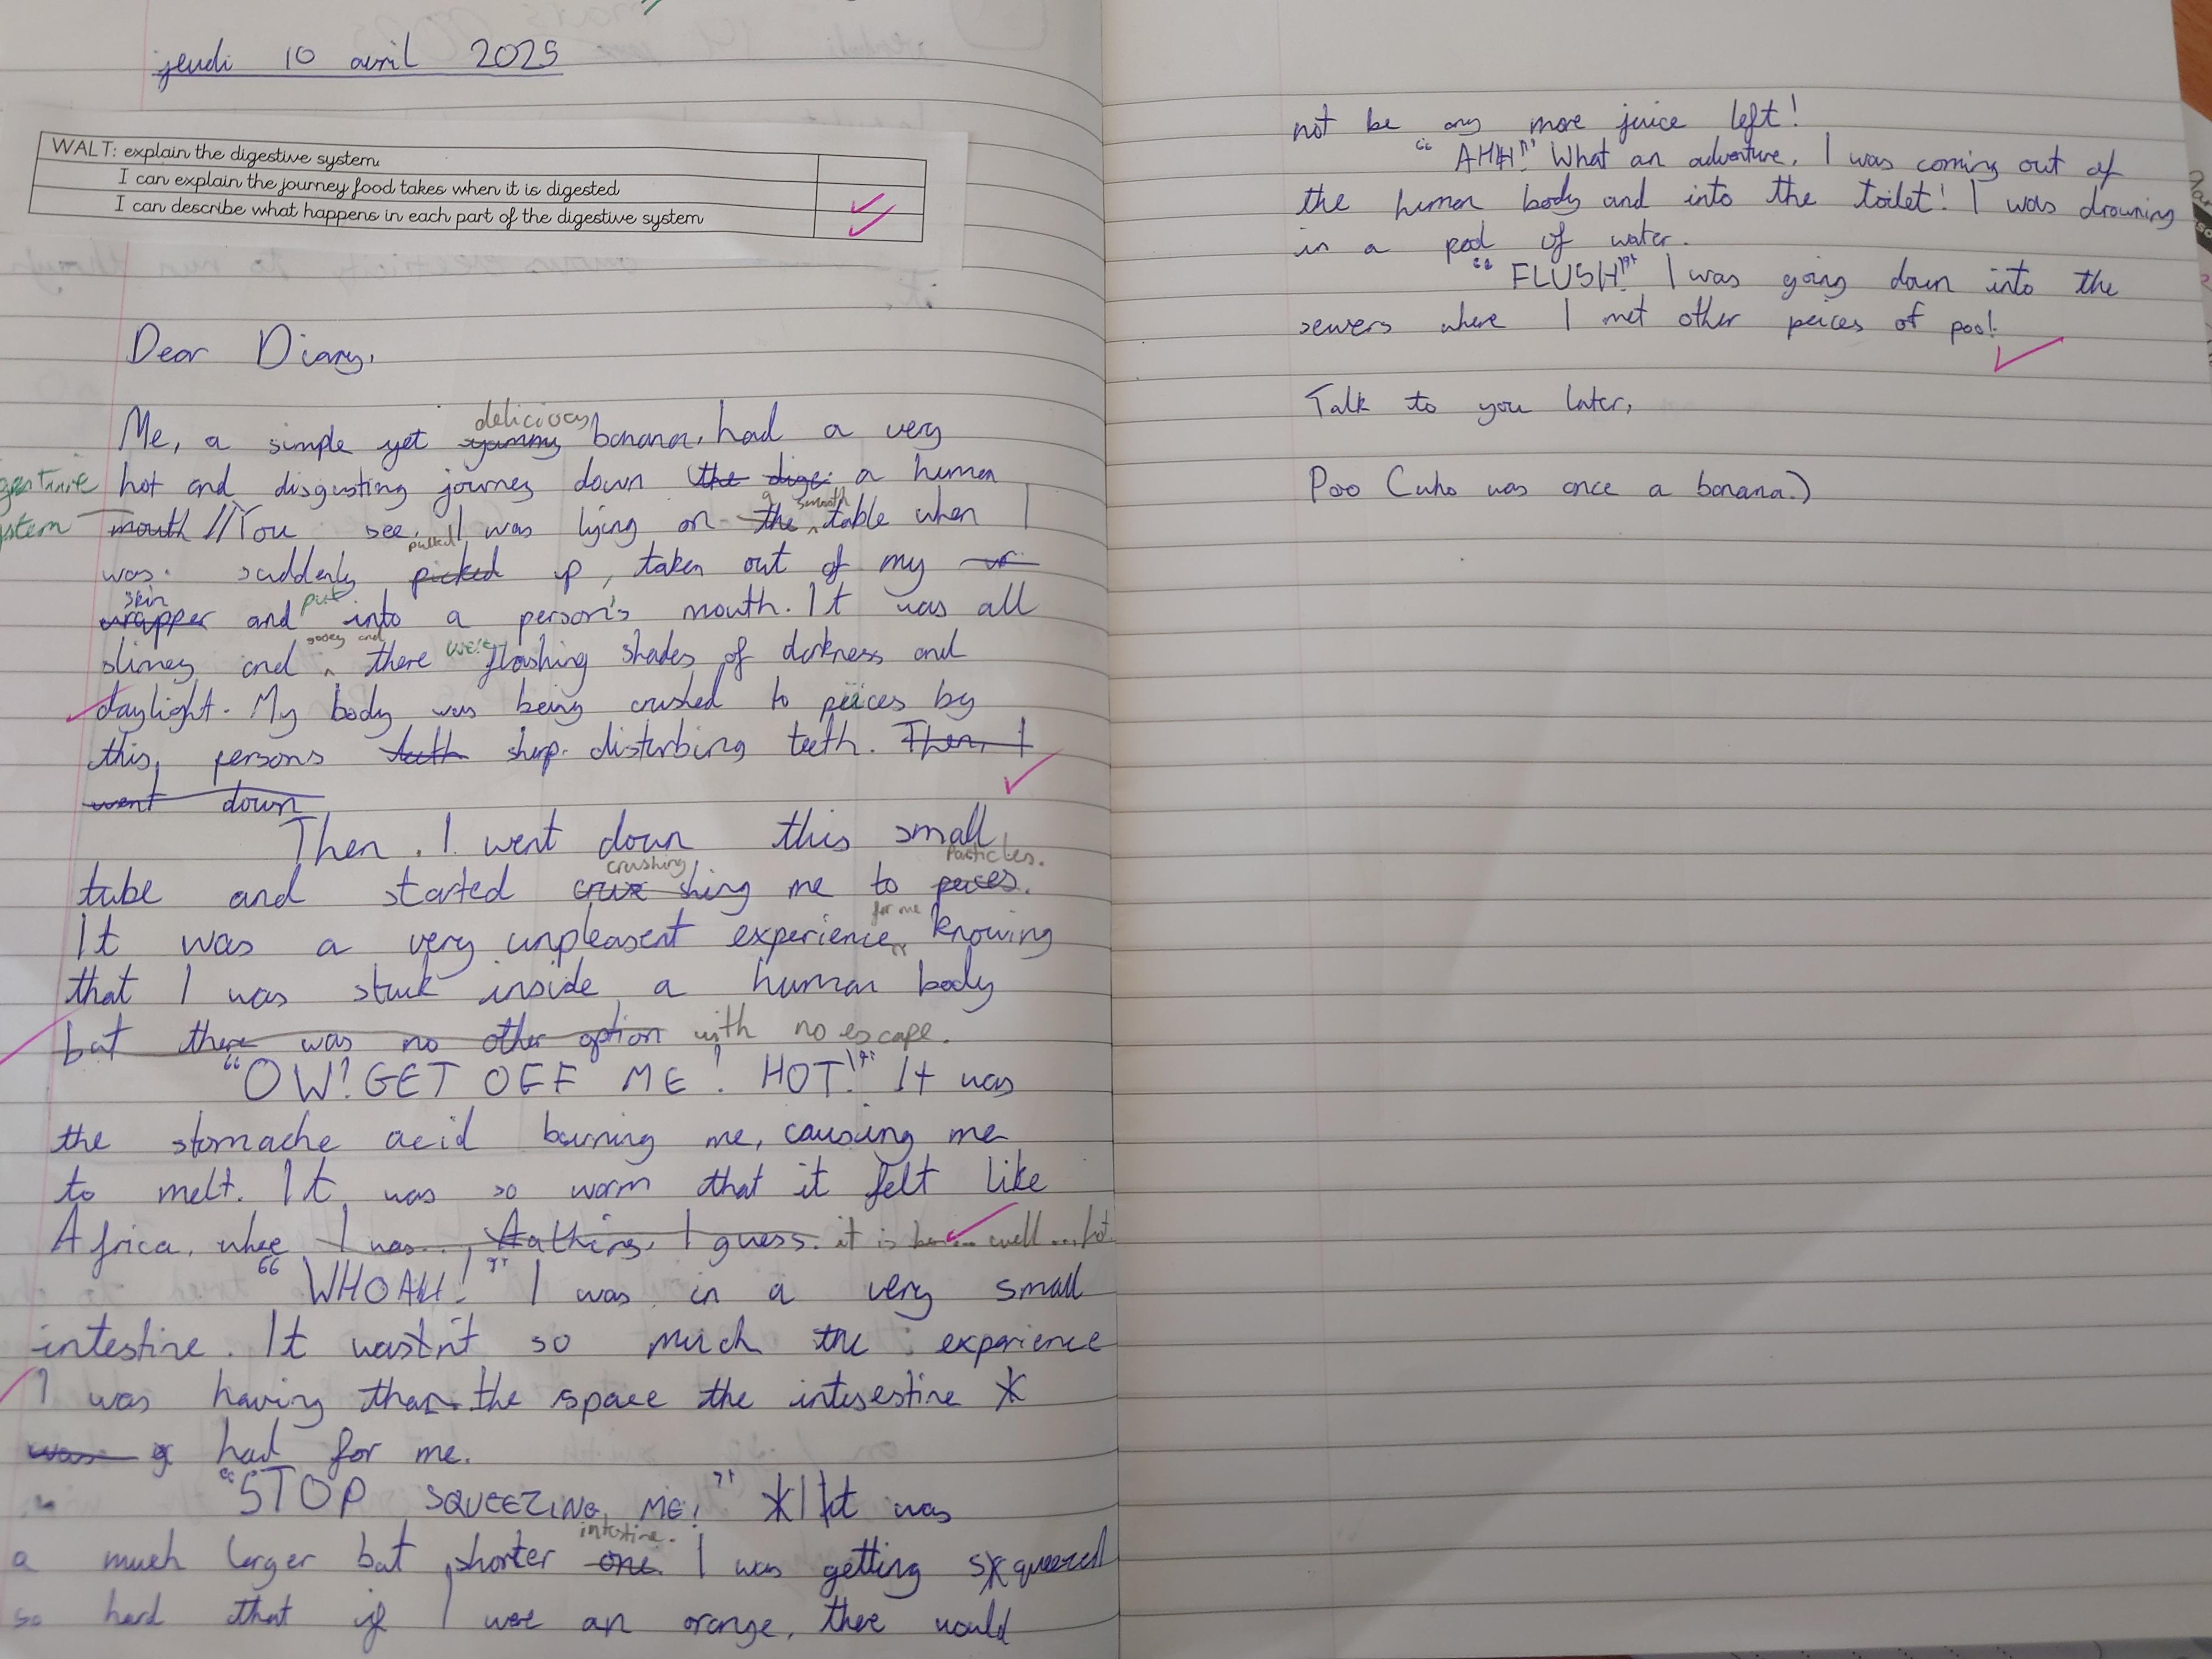 jeudi 10 avril 2025
WALT: explain the digestive system
I can explain the journey food takes when it is digested
I can describe what happens in each part of the digestive system
Dear Diary,
delicious
Me, a simple yet yummy banana, had a very
hot and disgusting journey down the dige a human
system mouth // You see, I was lying on the a smooth table when I
was suddenly picked pulled up, taken out of my
wrapper skin and put into a person's mouth. It was all
slimey and gooey and there were flashing shades of darkness and
daylight. My body was being crushed to peices by
this persons teeth sharp disturbing teeth. Then I
went down
Then, I went down this small
tube and started crushing me to peices particles.
It was a very unpleasent experience for me, knowing
that I was stuck inside a human body
but there was no other option with no escape.
"OW! GET OFF ME! HOT!" It was
the stomache acid burning me, causing me
to melt. It was so warm that it felt like
Africa, where I was... I guess. it is well... hot.
"WHOAH!" I was in a very small
intestine. It wasn't so much the experience
I was having than the space the intesestine
was had for me.
"STOP SQUEEZING ME!" It was
a much larger but shorter one intestine. I was getting squeezed
so hard that if I were an orange, there would
not be any more juice left!
"AHHH!" What an adventure, I was coming out of
the human body and into the toilet! I was drowning
in a pool of water.
"FLUSH!" I was going down into the
sewers where I met other peices of poo!
Talk to you later,
Poo (who was once a banana.)